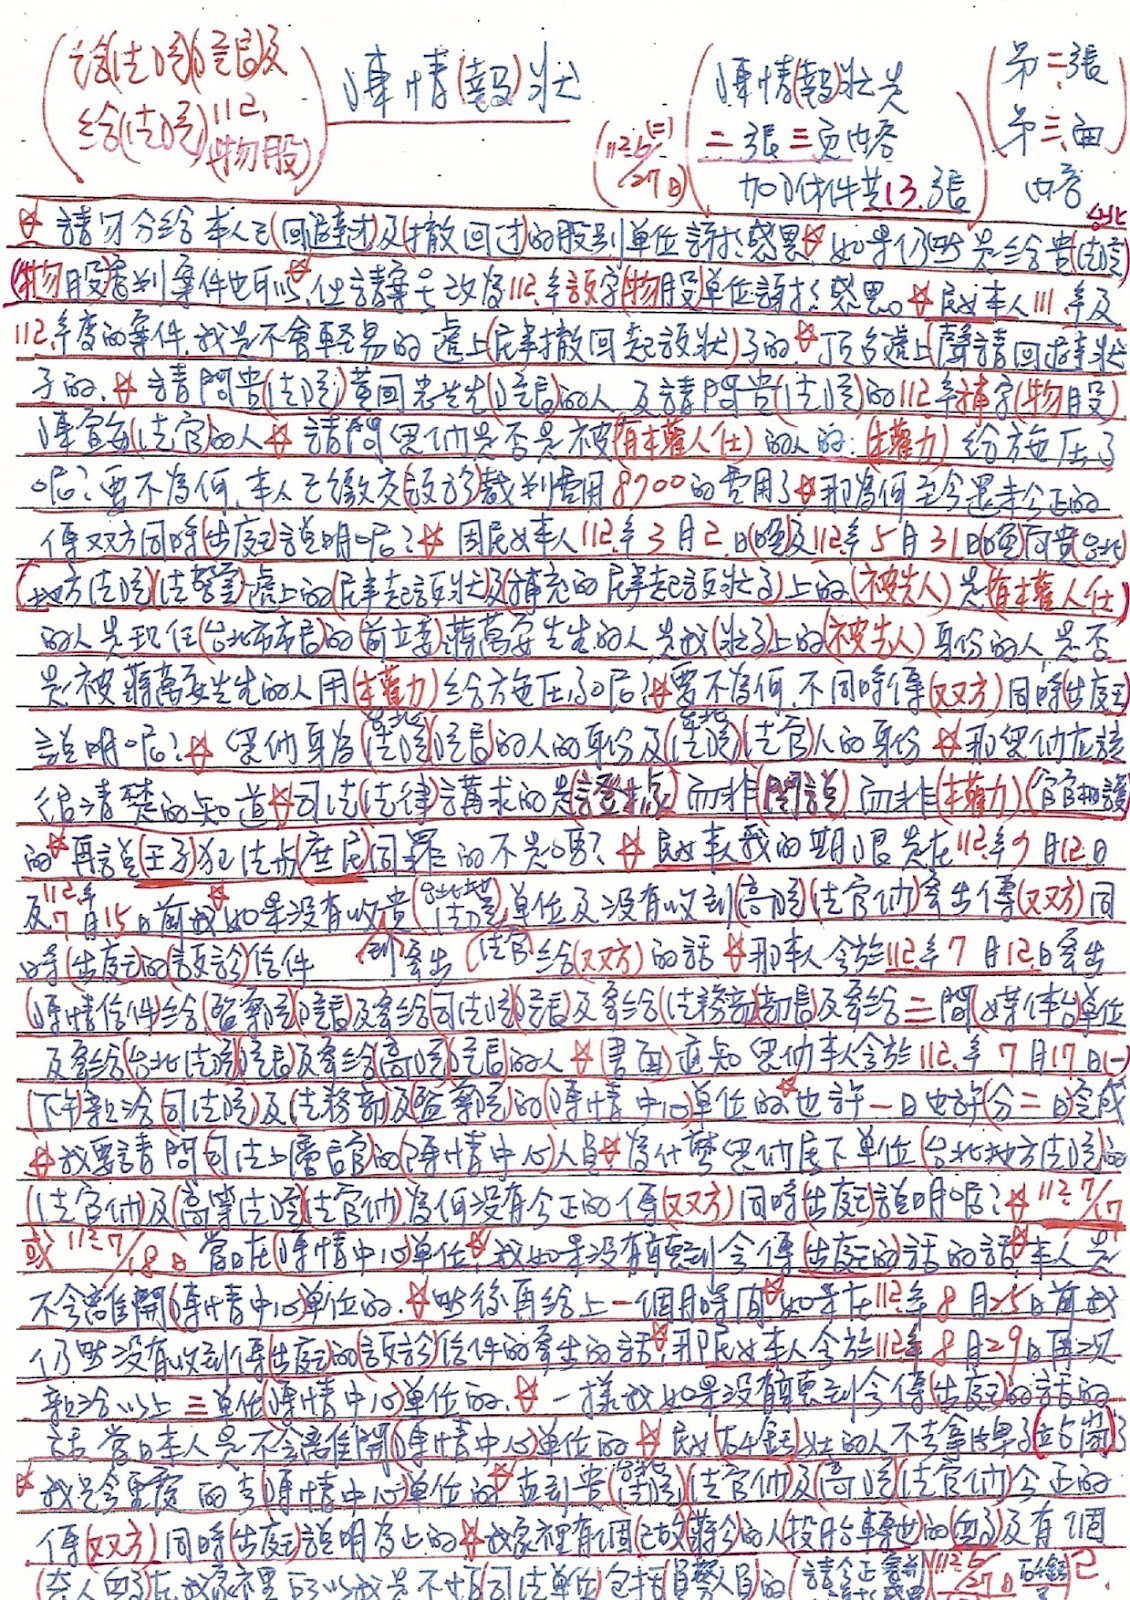 (給(法院)院長及
給(法院)112.
物股)
陳情(報)狀
(112.6/27日(二))
(陳情(報)狀共
二張三頁內容
加附件共13.張)
(第二張
第三面
內容
☆請另分給本人已(回避過)及(撤回过)的股別單位訴扵感恩☆如果仍然是給貴(台北法院)
(物股)審判案件也可以☆但請案号改為112.年訴字(物股)單位訴扵感恩。☆民女本人111.年及
112.年度的案件.我是不會輕易的遞上(民事撤回起訴狀)子的.☆頂多遞上(聲請回避狀)
子的.☆請問貴(法院)黄国忠先生(院長)的人及請問貴(法院)的112年補字(物股)
(法官)的人☆請問您們是否是被(有本權人仕)的人的:(本權力)給施压了
呢?要不為何.本人已繳交(訴訟)裁判費用8700的費用了☆那為何至今還未公正的
傳双方同時(出庭)說明呢?☆因民女本人112.年3月2.日(遞)及112.年5月31日(遞)向貴(台北
地方法院)(法警室)遞上的(民事起訴狀)及(補充的民事起訴狀子)上的(被告人)是(有本權人仕)
的人是現任(台北市市長)的(前立委)蔣萬安先生的人是我(狀子)上的(被告人)身份的人是否
是被蔣萬安先生的人用(本權力)給施压了呢?☆要不為何.不同時傳(双方)同時(出庭)
說明呢?☆您們身為(台北法院)(院長)的人的身份及(台北法院)(法官)人的身份☆那您們应該
很清楚的知道☆司法(法律)講求的是(證據点)而非(関說)而非(本權力)(官官相護)
的☆再說(王子)犯法与(庶民)同罪的不是嗎?☆民女本人我的期限是在112.年7月12.日
及112.年7月15日前我☆如果没有收到貴(台北地方法院)單位及没有收到(高院)(法官們)寄出傳(双方)同
時(出庭)的(訴訟)信件寄出(法官)給(双方)的話☆那本人会扵112.年7月12.日寄出
(陳情信件)給(監察院)(院長)及寄給(司法院)(院長)及寄給(法務部)(部長)及寄給三間(媒体台)單位
及寄給(台北法院)(院長)及寄給(高院)(院長)的人☆(書面)通知您們本人会扵112.年7月17日(一)
(下午)親洽(司法院)及(法務部)及(監察院)的(陳情中心)單位的☆也許一日也許(分二日)完成
☆我要請問(司法上層長官)的(陳情中心)人員☆為什麼您們底下單位(台北地方法院)的
(法官們)及(高等法院)(法官們)為何没有公正的傳(双方)同時(出庭)說明呢?☆112.7/17
或112.7/18日當日在(陳情中心)單位☆我如果没有聽到会傳(出庭)的話的話☆本人是
不会離開(陳情中心)單位的.☆然後再給上一個月時間☆如果在112.年8月25日前我
仍然没有收到傳(出庭)的(訴訟)信件的寄出的話☆那民女本人会扵112年8月29日再次
親洽以上三單位(陳情中心)單位的.☆一樣我如果没有聽到会傳(出庭)的話的
話當日本人是不会離開(陳情中心)單位的☆民女(石..)女的人不去
☆我是会重複的去(陳情中心)單位的☆直到貴(台北法院)(法官們)及(高院)(法官們)公正的
傳(双方)同時(出庭)說明為止的☆我家裡有1個(已故)(蔣公)的人(投胎轉世)的(血子)及有1個
在我家裡所以我是不怕(司法單位)包括(員警人員)的(請公正
112.6/27日